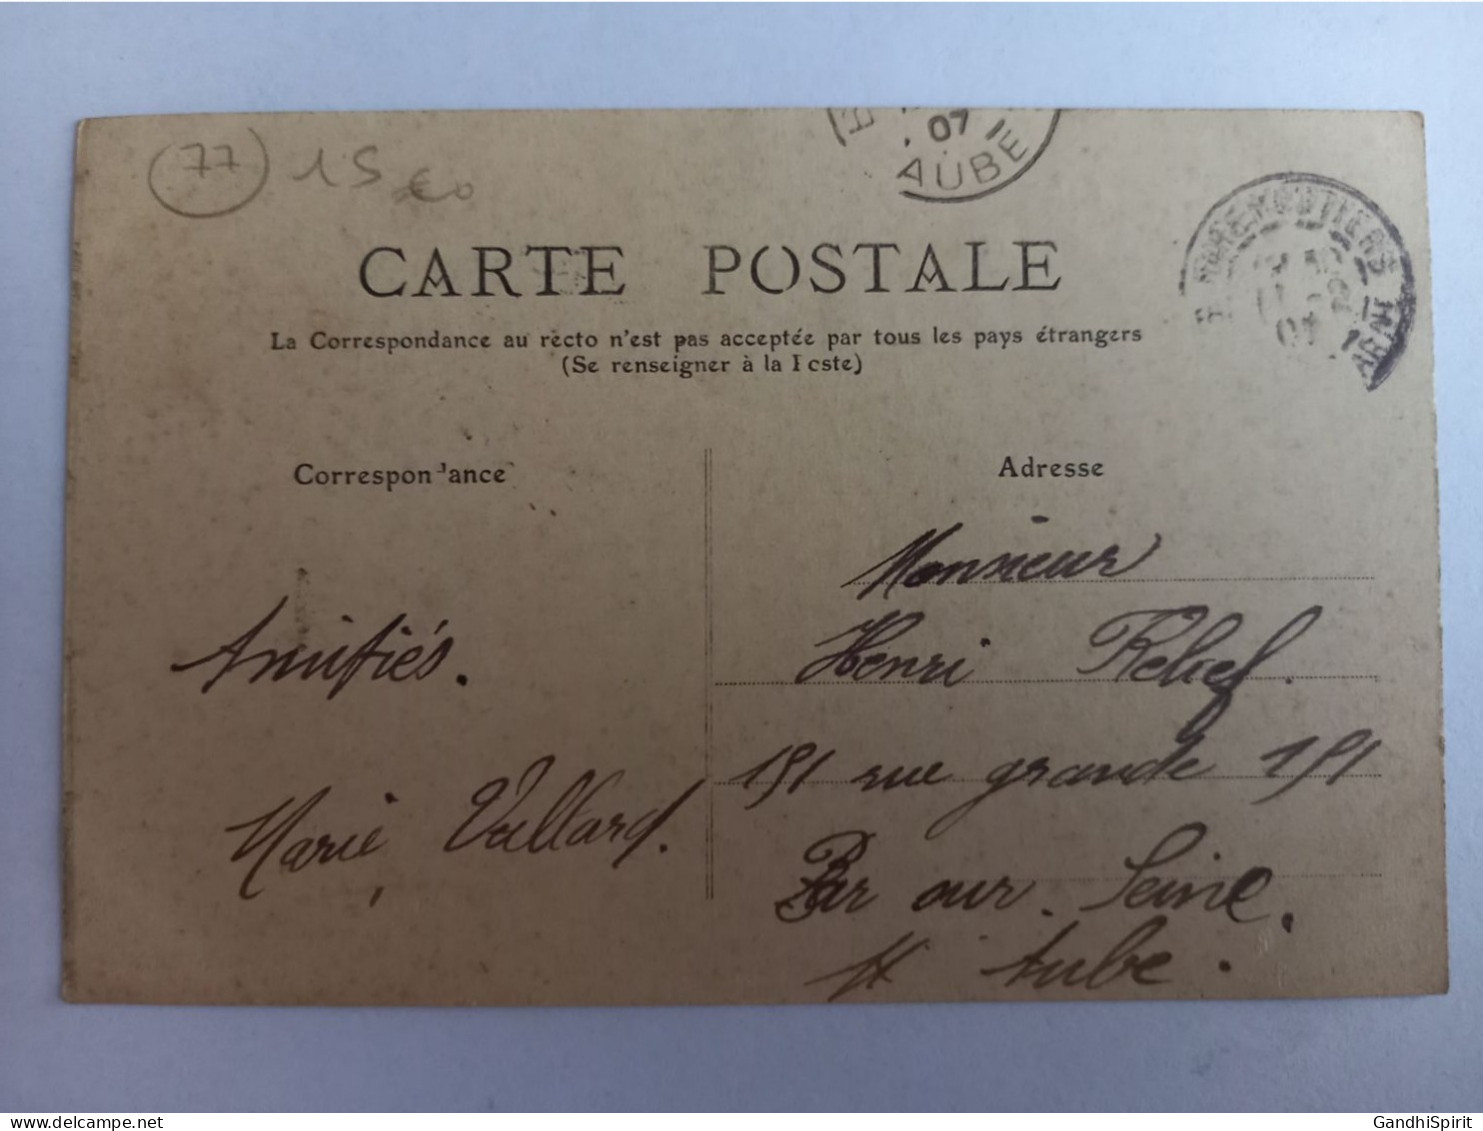 77 15 €
07
AUBE
FAREMOUTIERS
CARTE POSTALE
La Correspondance au recto n'est pas acceptée par tous les pays étrangers
(Se renseigner à la Poste)
Correspondance
Adresse
Amitiés.
Marie Vallard.
Monsieur
Henri
191 rue grande 191
Bar sur Seine.
Aube.
www.delcampe.net
GandhiSpirit